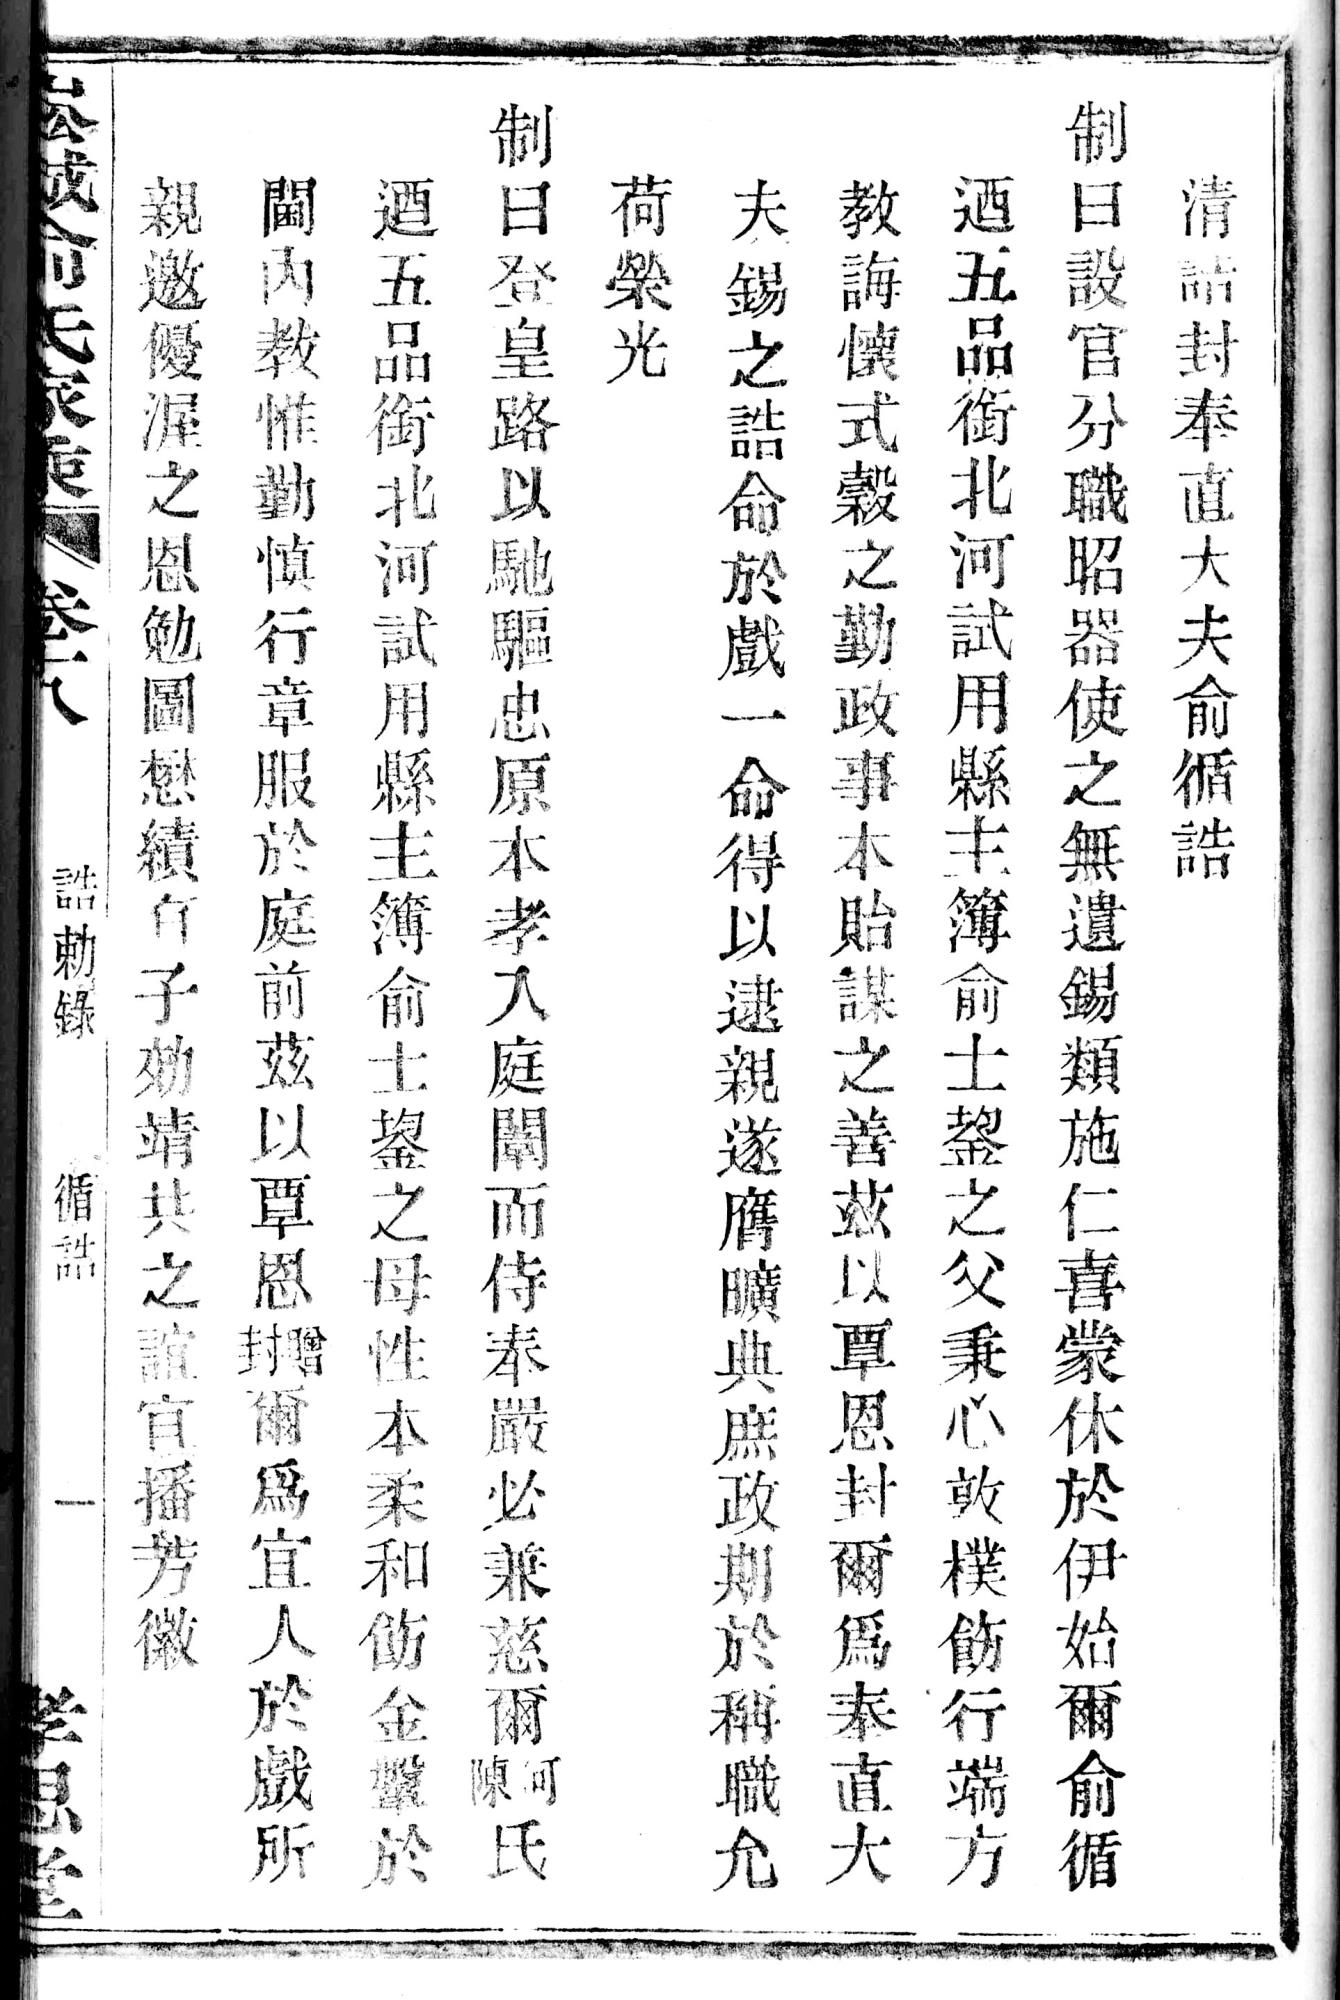 清誥封奉直大夫俞循誥
制曰設官分職昭器使之無遺錫類施仁喜蒙休於伊始爾俞循
迺五品銜北河試用縣主簿俞士鋆之父秉心敦樸飭行端方
教誨懷式穀之勤政事本貽謀之善茲以覃恩封爾爲奉直大
夫錫之誥命於戲一命得以逮親遂膺曠典庶政期於稱職允
荷榮光
制曰登皇路以馳驅忠原本孝入庭闈而侍奉嚴必兼慈爾河陳氏
迺五品銜北河試用縣主簿俞士鋆之母性本柔和飭金鞶於
閫內教惟勤慎行章服於庭前茲以覃恩贈封爾爲宜人於戲所
親邀優渥之恩勉圖懋績有子効靖共之誼宜播芳徽
俞氏家乘 卷十八 誥勅錄 循誥 一 孝思堂